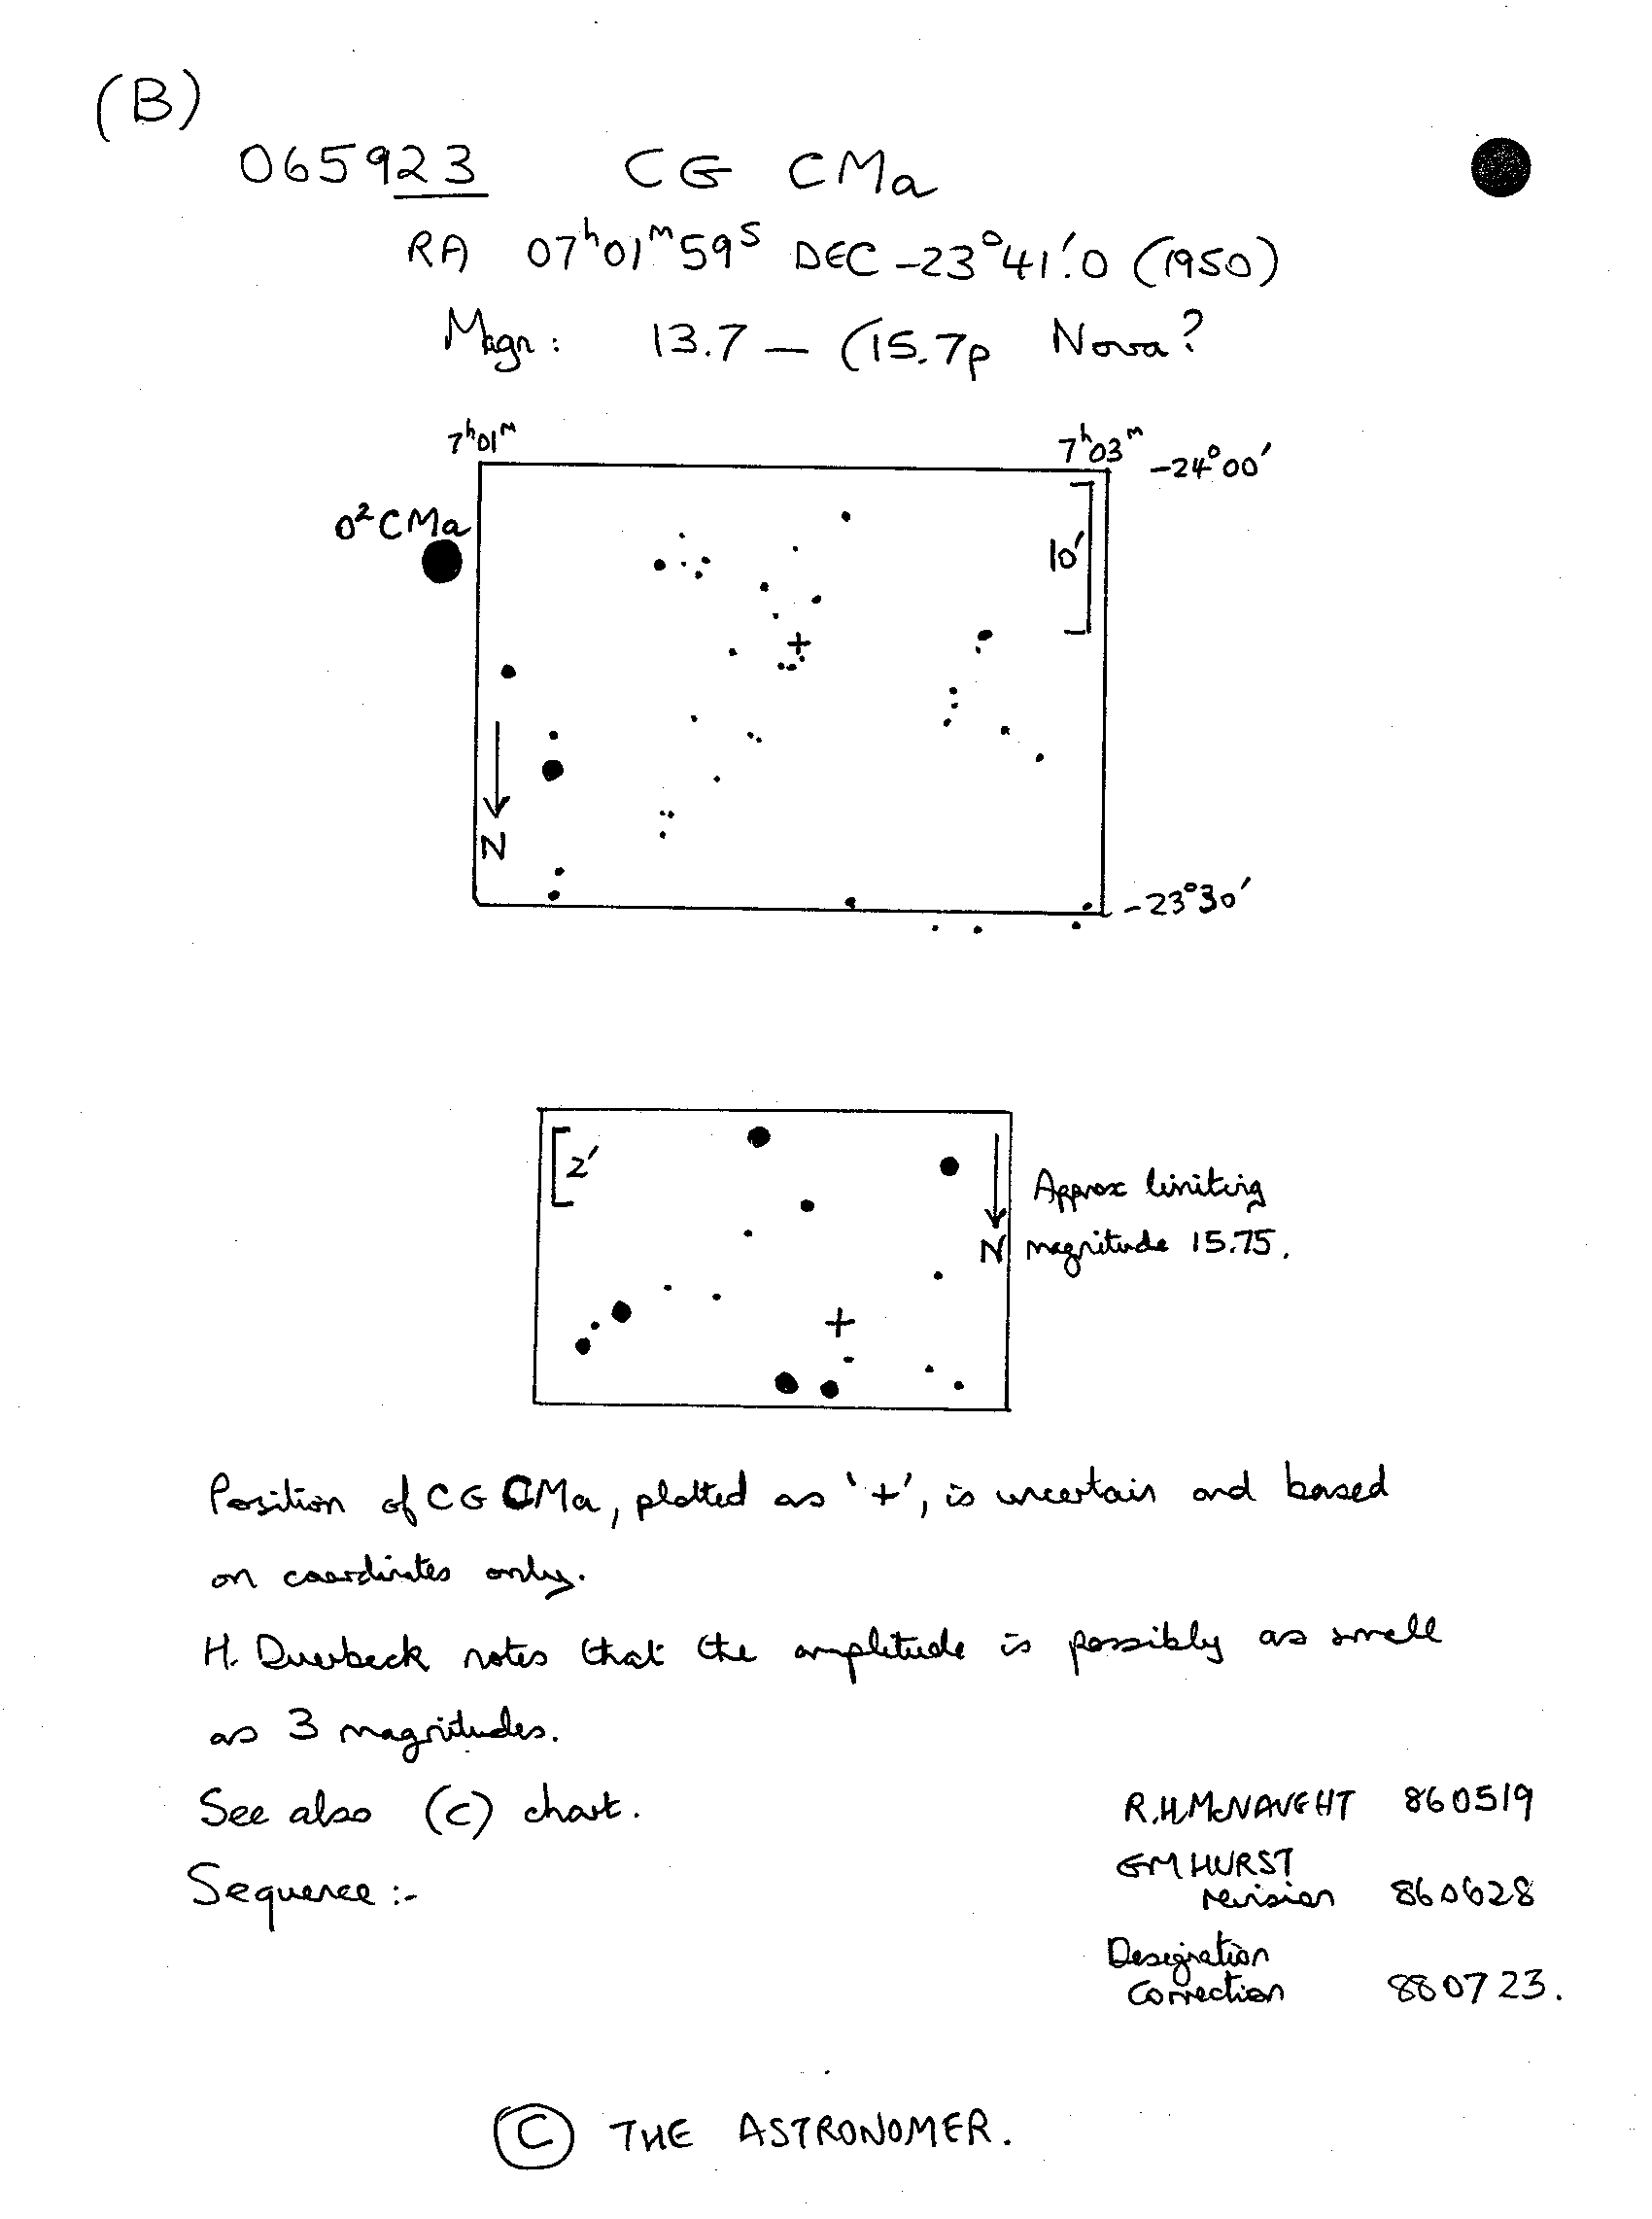 (B)
065923 CG CMa
RA 07ʰ01ᵐ59ˢ DEC -23°41'.0 (1950)
Magn: 13.7 – (15.7p Nova?
7ʰ01ᵐ 7ʰ03ᵐ -24°00'
o²CMa
10'
N
-23°30'
2'
Approx limiting
N magnitude 15.75.
Position of CG CMa, plotted as '+', is uncertain and based
on coordinates only.
H. Duerbeck notes that the amplitude is possibly as small
as 3 magnitudes.
See also (C) chart.
R.H.McNAUGHT 860519
Sequence :-
GM HURST
revision 860628
Designation
Correction 880723.
© THE ASTRONOMER.